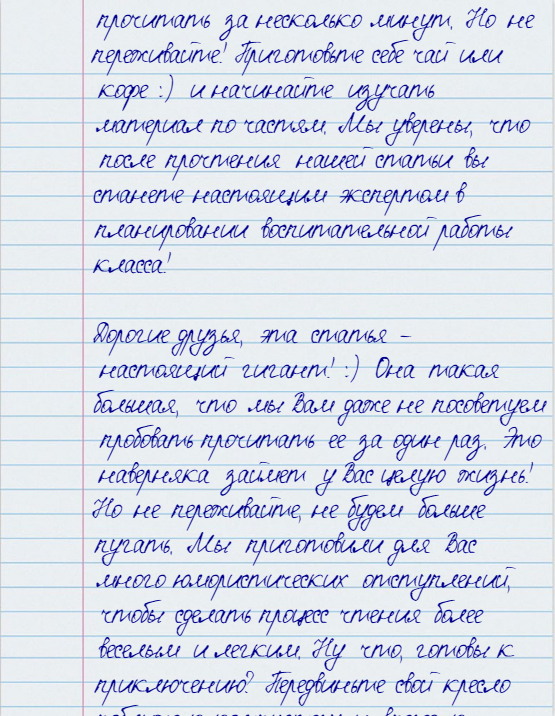 прочитать за несколько минут. Но не
переживайте! Приготовьте себе чай или
кофе :) и начинайте изучать
материал по частям. Мы уверены, что
после прочтения нашей статьи вы
станете настоящим экспертом в
планировании воспитательной работы
класса!
Дорогие друзья, эта статья –
настоящий гигант! :) Она такая
большая, что мы Вам даже не посоветуем
пробовать прочитать ее за один раз. Это
наверняка займет у Вас целую жизнь!
Но не переживайте, не будем больше
пугать. Мы приготовили для Вас
много юмористических отступлений,
чтобы сделать процесс чтения более
веселым и легким. Ну что, готовы к
приключению? Передвиньте свой кресло